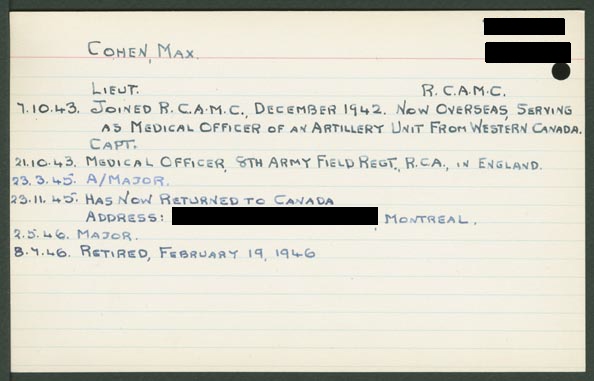 COHEN, MAX.
LIEUT. R.C.A.M.C.
7.10.43. JOINED R.C.A.M.C., DECEMBER 1942. NOW OVERSEAS, SERVING
AS MEDICAL OFFICER OF AN ARTILLERY UNIT FROM WESTERN CANADA.
CAPT.
21.10.43. MEDICAL OFFICER, 8TH ARMY FIELD REGT., R.C.A., IN ENGLAND.
23.3.45. A/MAJOR.
23.11.45. HAS NOW RETURNED TO CANADA
ADDRESS: , MONTREAL.
2.5.46. MAJOR.
8.7.46. RETIRED, FEBRUARY 19, 1946